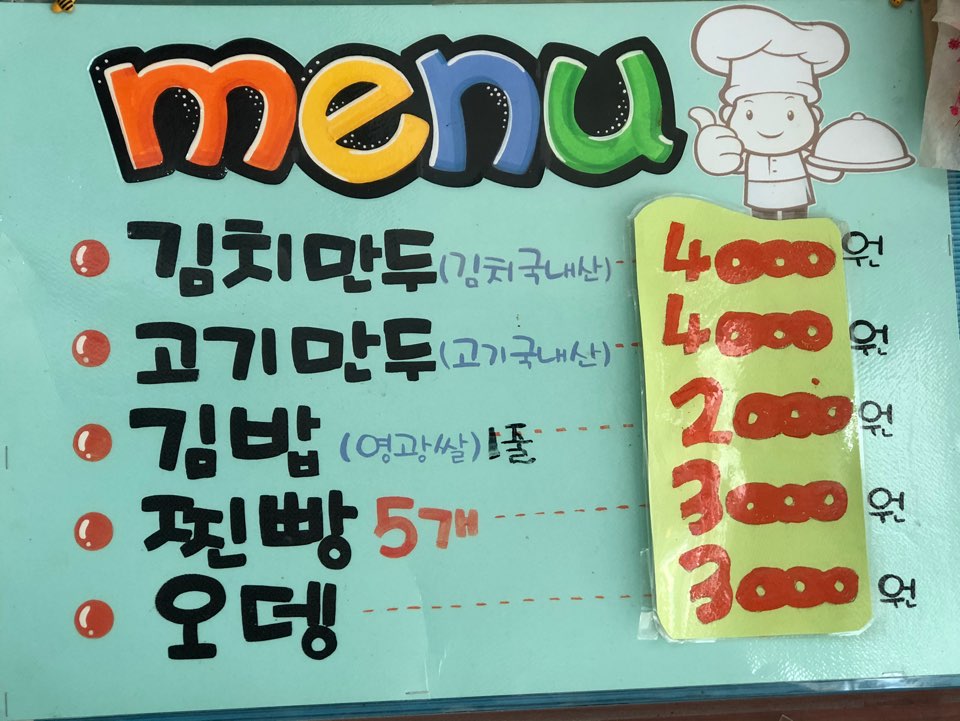 menu
김치만두(김치국내산)--4000원
고기만두(고기국내산)--4000원
김밥 (영광쌀) 1줄--------2000원
찐빵 5개 ----------3000원
오뎅 ---------------3000원